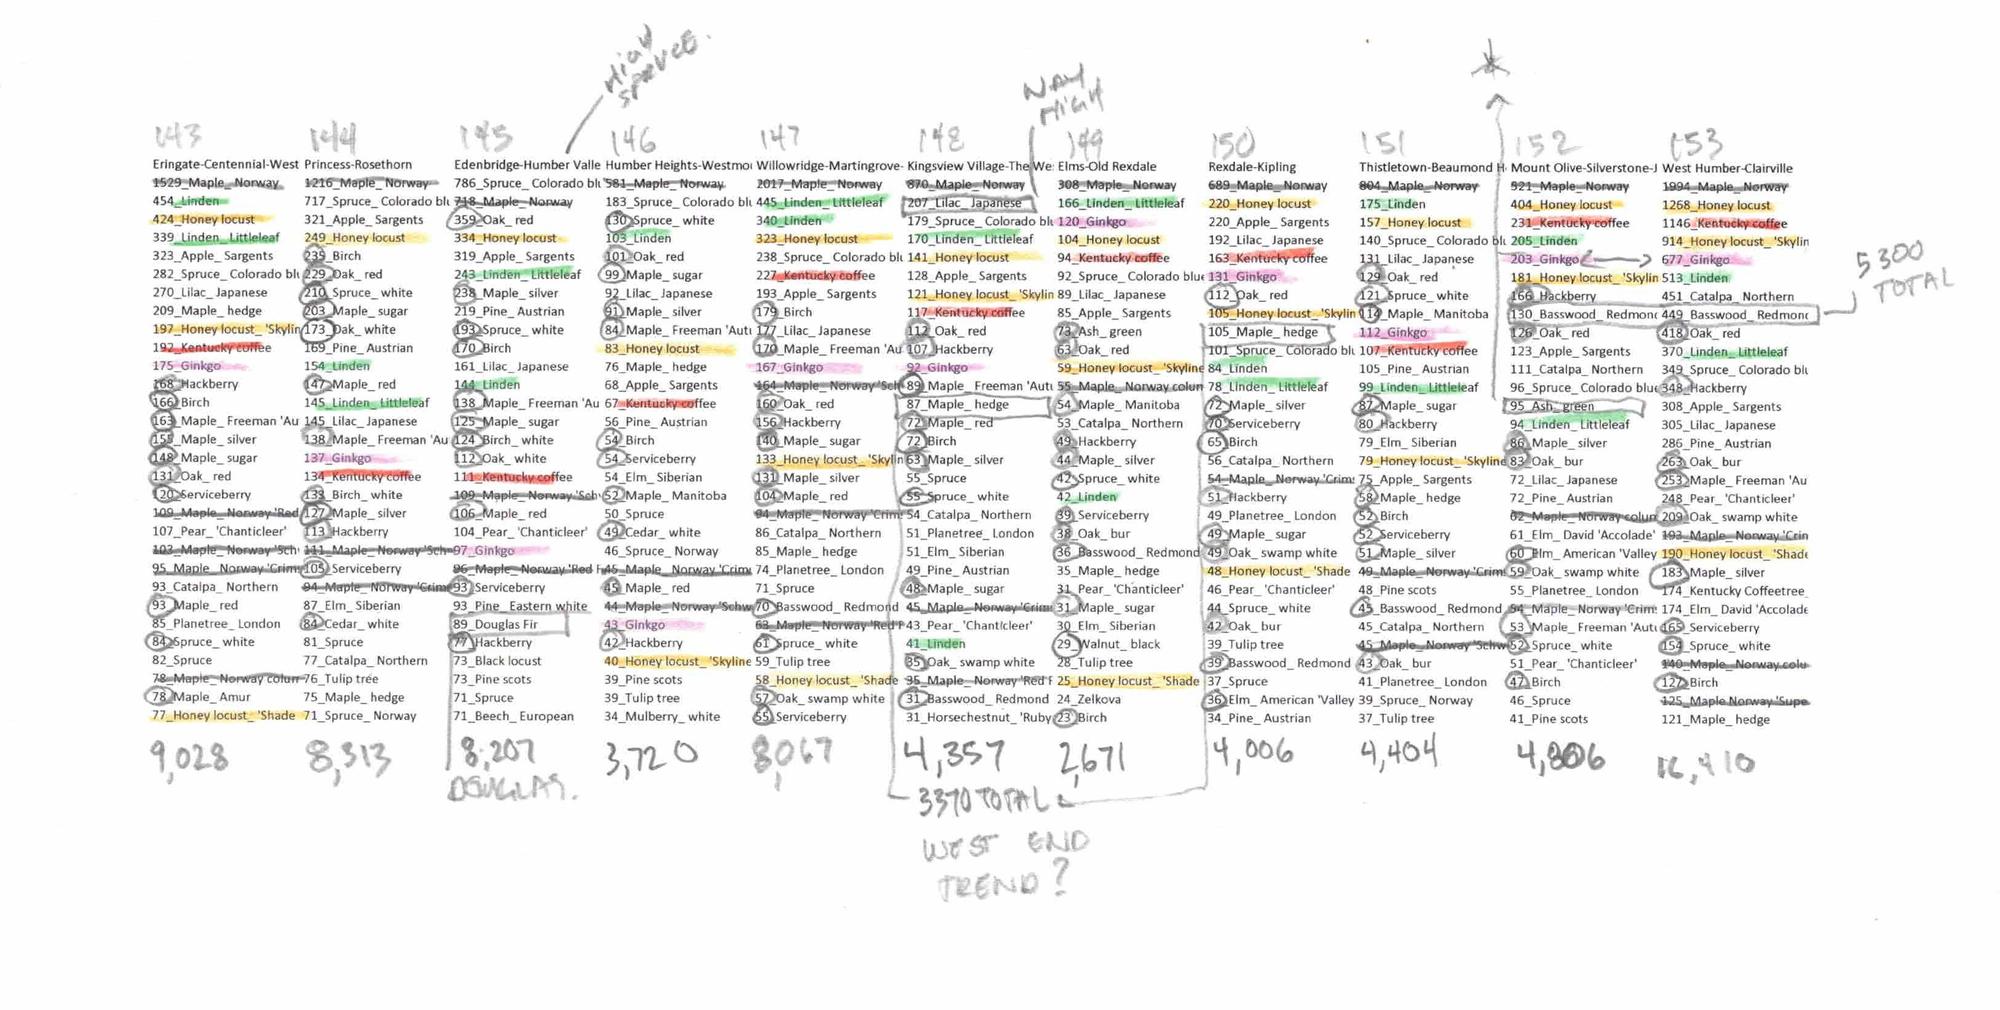 HIGH
SPRUCE.
143
Eringate-Centennial-West
1529_Maple_ Norway
454_Linden
424_Honey locust
339_Linden_ Littleleaf
323_Apple_ Sargents
282_Spruce_ Colorado blu
270_Lilac_ Japanese
209_Maple_ hedge
197_Honey locust_ 'Skylin
192_Kentucky coffee
175_Ginkgo
168_Hackberry
166_Birch
163_Maple_ Freeman 'Au
155_Maple_ silver
148_Maple_ sugar
131_Oak_ red
120_Serviceberry
109_Maple_ Norway 'Red
107_Pear_ 'Chanticleer'
103_Maple_ Norway 'Sch
95_Maple_ Norway 'Crim
93_Catalpa_ Northern
93_Maple_ red
85_Planetree_ London
84_Spruce_ white
82_Spruce
78_Maple_ Norway colum
78_Maple_ Amur
77_Honey locust_ 'Shade
9,028
144
Princess-Rosethorn
1216_Maple_ Norway
717_Spruce_ Colorado blu
321_Apple_ Sargents
249_Honey locust
239_Birch
229_Oak_ red
210_Spruce_ white
203_Maple_ sugar
173_Oak_ white
169_Pine_ Austrian
154_Linden
147_Maple_ red
145_Linden_ Littleleaf
145_Lilac_ Japanese
138_Maple_ Freeman 'Au
137_Ginkgo
134_Kentucky coffee
133_Birch_ white
127_Maple_ silver
113_Hackberry
111_Maple_ Norway 'Sch
105_Serviceberry
94_Maple_ Norway 'Crim
87_Elm_ Siberian
84_Cedar_ white
81_Spruce
77_Catalpa_ Northern
76_Tulip tree
75_Maple_ hedge
71_Spruce_ Norway
8,313
145
Edenbridge-Humber Valle
786_Spruce_ Colorado blu
718_Maple_ Norway
359_Oak_ red
334_Honey locust
319_Apple_ Sargents
243_Linden_ Littleleaf
238_Maple_ silver
219_Pine_ Austrian
193_Spruce_ white
170_Birch
161_Lilac_ Japanese
144_Linden
138_Maple_ Freeman 'Au
125_Maple_ sugar
124_Birch_ white
112_Oak_ white
111_Kentucky coffee
109_Maple_ Norway 'Sch
106_Maple_ red
104_Pear_ 'Chanticleer'
97_Ginkgo
96_Maple_ Norway 'Red
93_Serviceberry
93_Pine_ Eastern white
89_Douglas Fir
77_Hackberry
73_Black locust
73_Pine scots
71_Spruce
71_Beech_ European
8,207
DOUGLAS.
146
Humber Heights-Westmou
581_Maple_ Norway
183_Spruce_ Colorado blu
130_Spruce_ white
103_Linden
101_Oak_ red
99_Maple_ sugar
92_Lilac_ Japanese
91_Maple_ silver
84_Maple_ Freeman 'Autu
83_Honey locust
76_Maple_ hedge
68_Apple_ Sargents
67_Kentucky coffee
56_Pine_ Austrian
54_Birch
54_Serviceberry
54_Elm_ Siberian
52_Maple_ Manitoba
50_Spruce
49_Cedar_ white
46_Spruce_ Norway
45_Maple_ Norway 'Crim
45_Maple_ red
44_Maple_ Norway 'Schw
43_Ginkgo
42_Hackberry
40_Honey locust_ 'Skyline
39_Pine scots
39_Tulip tree
34_Mulberry_ white
3,720
147
Willowridge-Martingrove-
2017_Maple_ Norway
445_Linden_ Littleleaf
340_Linden
323_Honey locust
238_Spruce_ Colorado blu
227_Kentucky coffee
193_Apple_ Sargents
179_Birch
177_Lilac_ Japanese
170_Maple_ Freeman 'Au
167_Ginkgo
164_Maple_ Norway 'Sch
160_Oak_ red
156_Hackberry
140_Maple_ sugar
133_Honey locust_ 'Skylin
131_Maple_ silver
104_Maple_ red
94_Maple_ Norway 'Crim
86_Catalpa_ Northern
85_Maple_ hedge
74_Planetree_ London
71_Spruce
70_Basswood_ Redmond
63_Maple_ Norway 'Red
61_Spruce_ white
59_Tulip tree
58_Honey locust_ 'Shade
57_Oak_ swamp white
55_Serviceberry
8,067
148
Kingsview Village-The We
870_Maple_ Norway
207_Lilac_ Japanese
179_Spruce_ Colorado blu
170_Linden_ Littleleaf
141_Honey locust
128_Apple_ Sargents
121_Honey locust_ 'Skylin
117_Kentucky coffee
112_Oak_ red
107_Hackberry
92_Ginkgo
89_Maple_ Freeman 'Autu
87_Maple_ hedge
72_Maple_ red
72_Birch
63_Maple_ silver
55_Spruce
55_Spruce_ white
54_Catalpa_ Northern
51_Planetree_ London
51_Elm_ Siberian
49_Pine_ Austrian
48_Maple_ sugar
45_Maple_ Norway 'Crim
43_Pear_ 'Chanticleer'
41_Linden
35_Oak_ swamp white
35_Maple_ Norway 'Red
31_Basswood_ Redmond
31_Horsechestnut_ 'Ruby
4,357
HIGH
149
Elms-Old Rexdale
308_Maple_ Norway
166_Linden_ Littleleaf
120_Ginkgo
104_Honey locust
94_Kentucky coffee
92_Spruce_ Colorado blue
89_Lilac_ Japanese
85_Apple_ Sargents
73_Ash_ green
63_Oak_ red
59_Honey locust_ 'Skyline
55_Maple_ Norway colum
54_Maple_ Manitoba
53_Catalpa_ Northern
49_Hackberry
44_Maple_ silver
42_Spruce_ white
42_Linden
39_Serviceberry
38_Oak_ bur
36_Basswood_ Redmond
35_Maple_ hedge
31_Pear_ 'Chanticleer'
31_Maple_ sugar
30_Elm_ Siberian
29_Walnut_ black
28_Tulip tree
25_Honey locust_ 'Shade
24_Zelkova
23_Birch
2,671
3370 TOTAL
WEST END
TREND?
150
Rexdale-Kipling
689_Maple_ Norway
220_Honey locust
220_Apple_ Sargents
192_Lilac_ Japanese
163_Kentucky coffee
131_Ginkgo
112_Oak_ red
105_Honey locust_ 'Skylin
105_Maple_ hedge
101_Spruce_ Colorado blu
84_Linden
78_Linden_ Littleleaf
72_Maple_ silver
70_Serviceberry
65_Birch
56_Catalpa_ Northern
54_Maple_ Norway 'Crims
51_Hackberry
49_Planetree_ London
49_Maple_ sugar
49_Oak_ swamp white
48_Honey locust_ 'Shade
46_Pear_ 'Chanticleer'
44_Spruce_ white
42_Oak_ bur
39_Tulip tree
39_Basswood_ Redmond
37_Spruce
36_Elm_ American 'Valley
34_Pine_ Austrian
4,006
151
Thistletown-Beaumond H
804_Maple_ Norway
175_Linden
157_Honey locust
140_Spruce_ Colorado blu
131_Lilac_ Japanese
129_Oak_ red
121_Spruce_ white
114_Maple_ Manitoba
112_Ginkgo
107_Kentucky coffee
105_Pine_ Austrian
99_Linden_ Littleleaf
87_Maple_ sugar
80_Hackberry
79_Elm_ Siberian
79_Honey locust_ 'Skyline
75_Apple_ Sargents
58_Maple_ hedge
52_Birch
52_Serviceberry
51_Maple_ silver
49_Maple_ Norway 'Crims
48_Pine scots
45_Basswood_ Redmond
45_Catalpa_ Northern
45_Maple_ Norway 'Schw
43_Oak_ bur
41_Planetree_ London
39_Spruce_ Norway
37_Tulip tree
4,404
152
Mount Olive-Silverstone-J
521_Maple_ Norway
404_Honey locust
231_Kentucky coffee
205_Linden
203_Ginkgo
181_Honey locust_ 'Skylin
166_Hackberry
130_Basswood_ Redmond
126_Oak_ red
123_Apple_ Sargents
111_Catalpa_ Northern
96_Spruce_ Colorado blue
95_Ash_ green
94_Linden_ Littleleaf
86_Maple_ silver
83_Oak_ bur
72_Lilac_ Japanese
72_Pine_ Austrian
62_Maple_ Norway colum
61_Elm_ David 'Accolade'
60_Elm_ American 'Valley
59_Oak_ swamp white
55_Planetree_ London
54_Maple_ Norway 'Crims
53_Maple_ Freeman 'Autu
52_Spruce_ white
51_Pear_ 'Chanticleer'
47_Birch
46_Spruce
41_Pine scots
4,806
153
West Humber-Clairville
1994_Maple_ Norway
1268_Honey locust
1146_Kentucky coffee
914_Honey locust_ 'Skylin
677_Ginkgo
513_Linden
451_Catalpa_ Northern
449_Basswood_ Redmond
418_Oak_ red
370_Linden_ Littleleaf
349_Spruce_ Colorado blu
348_Hackberry
308_Apple_ Sargents
305_Lilac_ Japanese
286_Pine_ Austrian
263_Oak_ bur
253_Maple_ Freeman 'Au
248_Pear_ 'Chanticleer'
209_Oak_ swamp white
193_Maple_ Norway 'Crim
190_Honey locust_ 'Shade
183_Maple_ silver
174_Kentucky Coffeetree_
174_Elm_ David 'Accolade
165_Serviceberry
154_Spruce_ white
140_Maple_ Norway colu
127_Birch
125_Maple Norway 'Supe
121_Maple_ hedge
16,410
5300
TOTAL